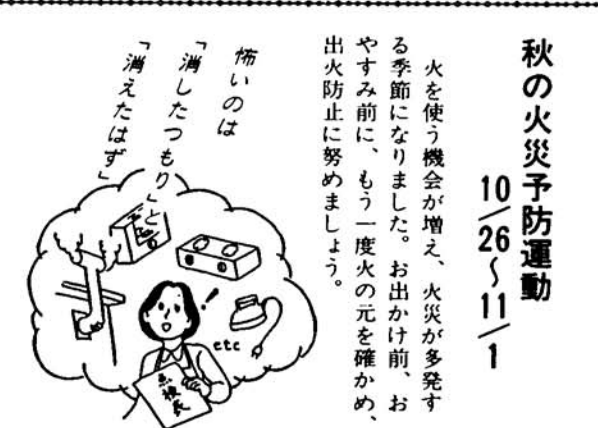 秋の火災予防運動
10/26〜11/1
火を使う機会が増え、火災が多発す
る季節になりました。お出かけ前、お
やすみ前に、もう一度火の元を確かめ、
出火防止に努めましょう。
怖いのは
「消したつもり」と
「消えたはず」
!
etc
点検表